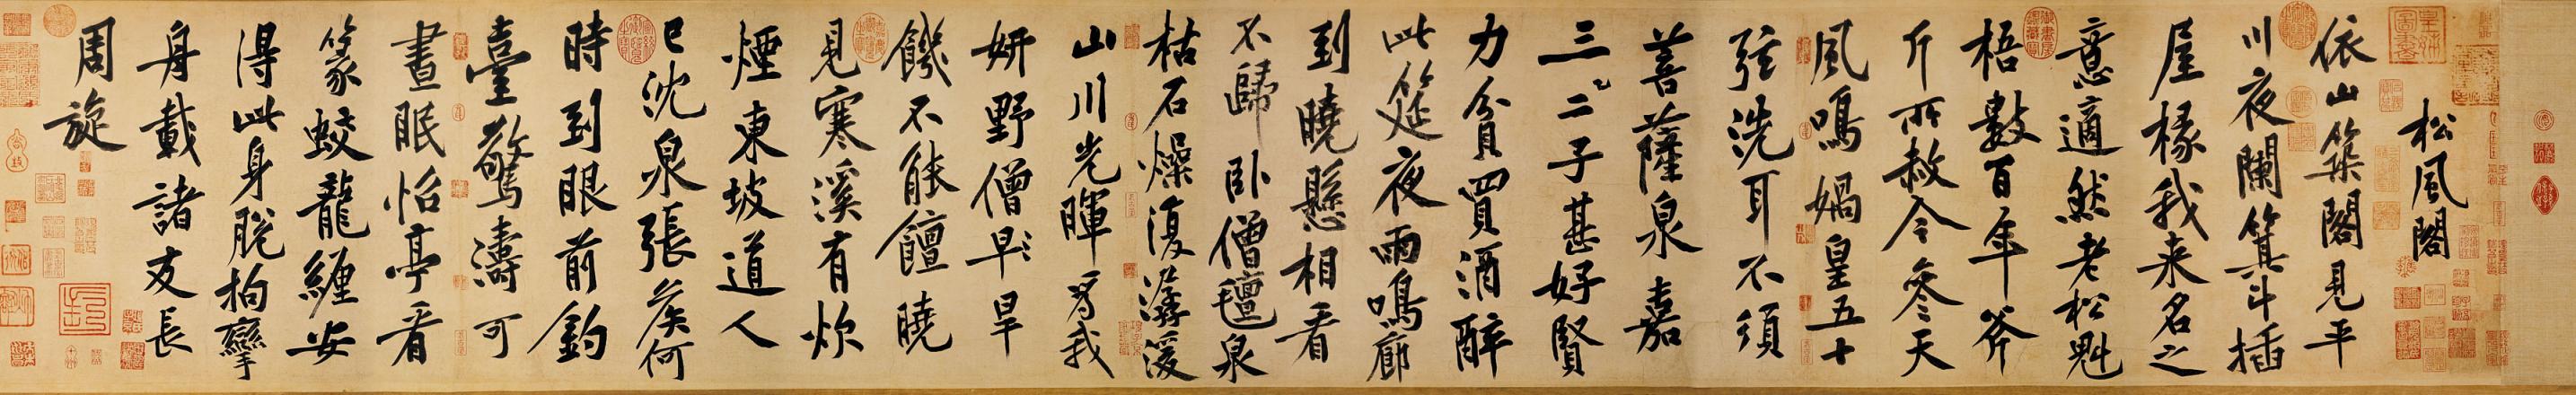 松風閣
依山築閣見平
川夜闌箕斗插
屋椽我来名之
意適然老松魁
梧數百年斧
斤所赦今參天
風鳴媧皇五十
弦洗耳不須
菩薩泉嘉
三二二子甚好賢
力貧買酒醉
此筵夜雨鳴廊
到曉懸相看
不歸卧僧氈泉
枯石燥復潺湲
山川光暉為我
妍野僧早旱
饑不能饘曉
見寒溪有炊
煙東坡道人
已沈泉張侯何
時到眼前釣
臺驚濤可
晝眠怡亭看
篆蛟龍纏安
得此身脫拘攣
舟載諸友長
周旋